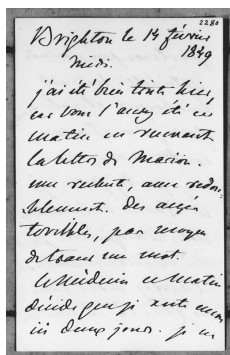 2280
Brighton le 14 février
1849
midi.
j'ai été bien tenté hier,
vous l'avez été ce
matin en recevant
la lettre de Marion.
une rechute, avec redou-
blement. Des accès
terribles, pas moyen
de tracer un mot.
le Médecin ce matin
décide que je reste encore
ici deux jours. je